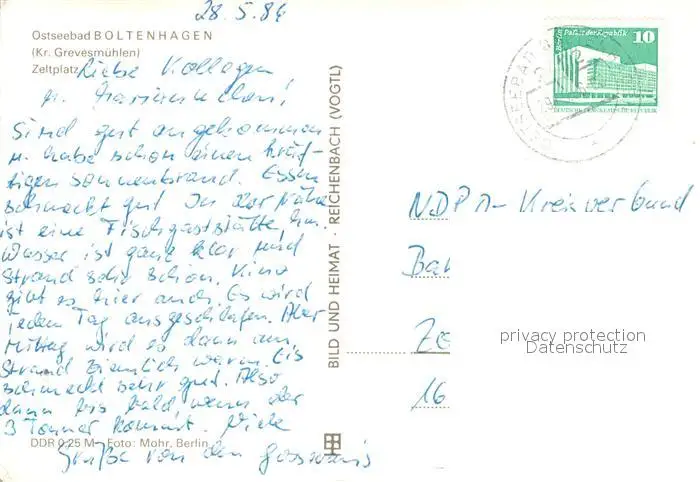 28.5.86
Ostseebad BOLTENHAGEN
(Kr. Grevesmühlen)
Zeltplatz
Liebe Kollegen
Sind gut angekommen
u. habe schon einen kräf-
tigen Sonnenbrand. Essen
schmeckt gut. In der Nähe
ist eine Fischgaststätte, hm.
Wasser ist ganz klar und
Strand sehr schön. Kino
gibt es hier auch. Es wird
jeden Tag ausgeschlafen. Aber
Mittag wird es dann am
Strand ziemlich warm. Eis
schmeckt sehr gut. Also
dann bis bald, wenn der
3 Tonner kommt. Viele
Grüße von den
DDR 0,25 M Foto: Mohr, Berlin
BILD UND HEIMAT REICHENBACH (VOGTL)
Berlin Palast der Republik
10
DEUTSCHE DEMOKRATISCHE REPUBLIK
OSTSEEBAD
NDPD-Kreisverband
privacy protection
Datenschutz
16